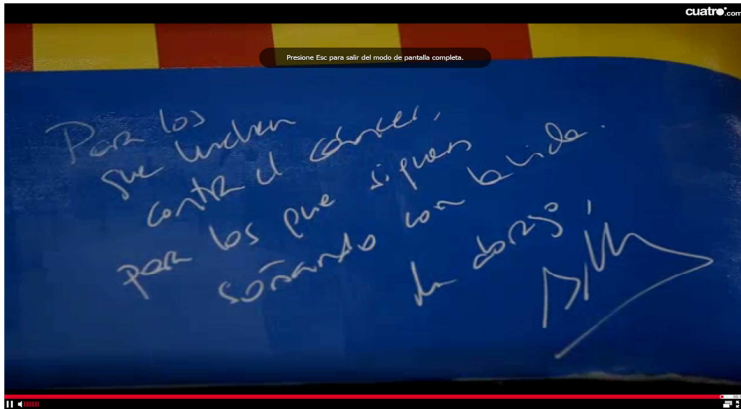 cuatro.com
Presione Esc para salir del modo de pantalla completa.
Para los
que luchan
contra el cáncer,
para los que siguen
soñando con la vida.